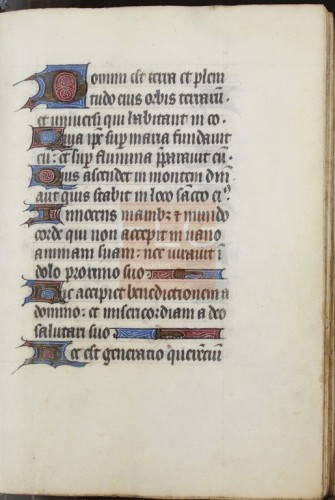 Domini est terra et pleni
tudo eius orbis terrarū.
et universi qui habitant in eo.
Quia ipse sup maria fundavit
eū: et sup flumina pparavit eū.
Quis ascendet in montem dni
aut quis stabit in loco sancto eiꝰ
Innocens manibꝫ et mundo
corde qui non accepit in vano
animam suam: nec iuravit i
dolo proximo suo
Hic accipiet benedictionem a
domino: et misericordiam a deo
salutari suo
Hec est generatio querētiū